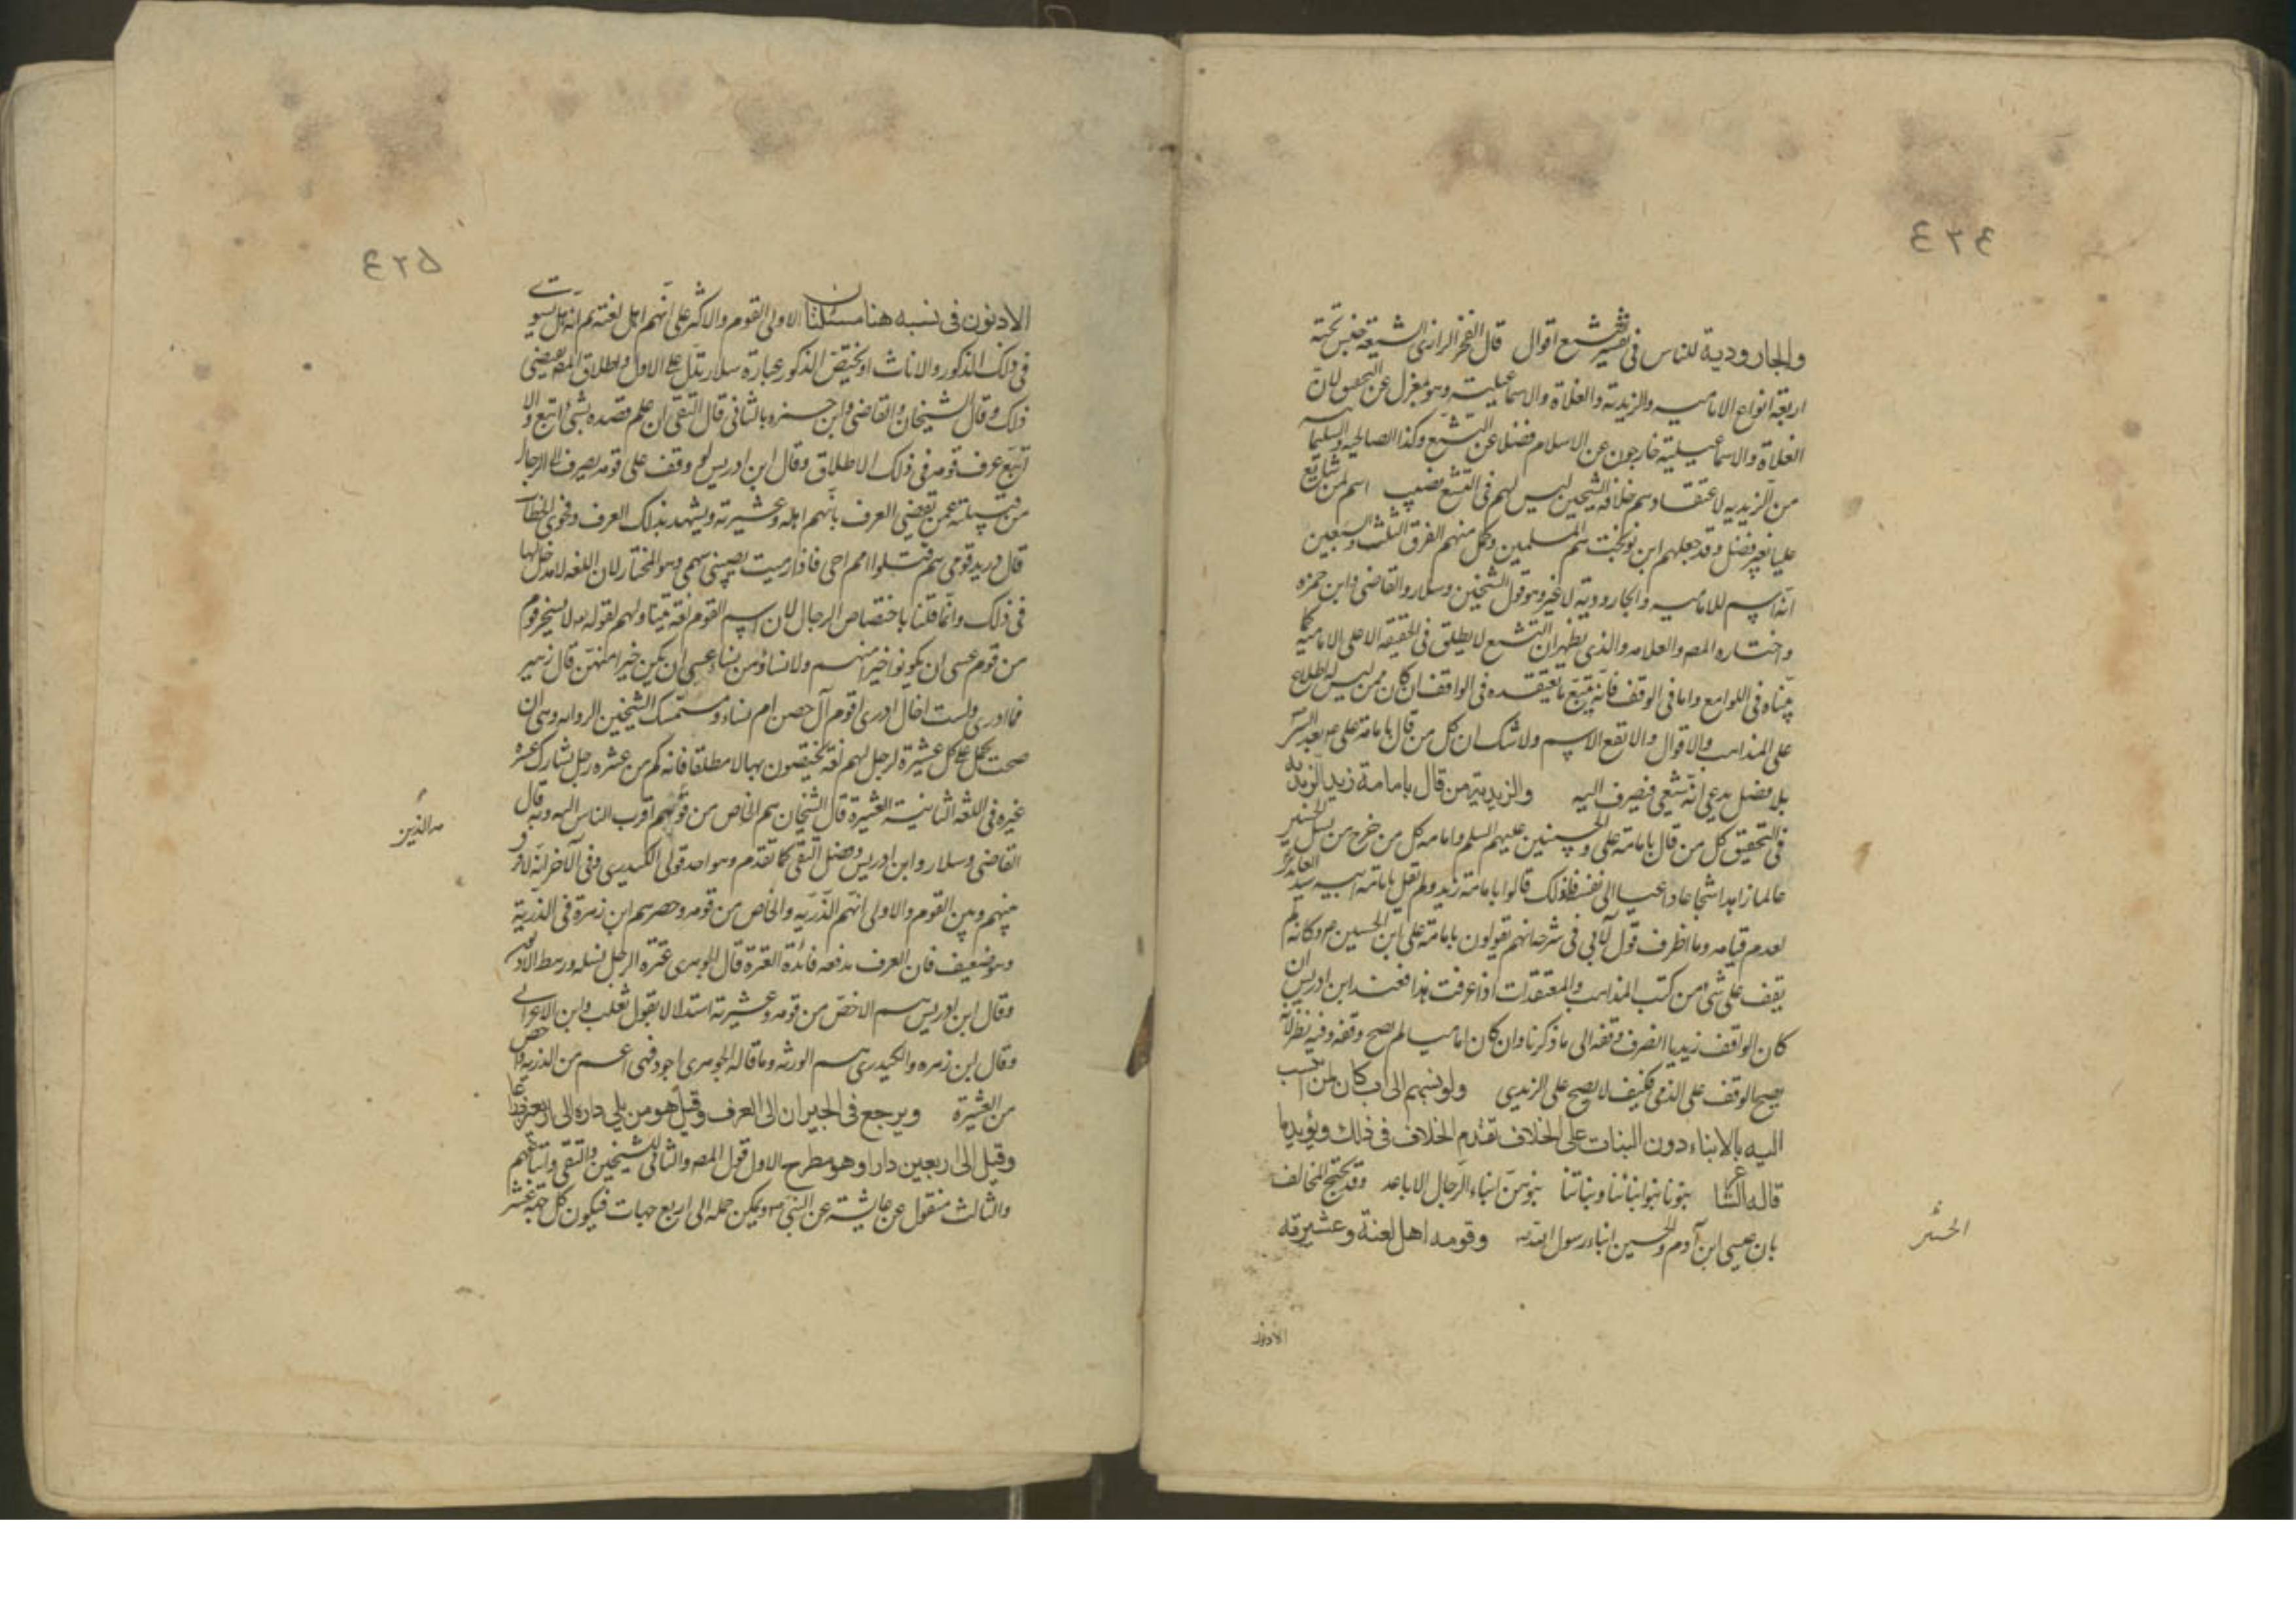 ٤٢٤
والجارودية للناس في تفسير التشيع اقوال قال الفخر الرازي الشيعة جنس تحته
اربعة انواع الاماميه والزيدية والغلاة والاسماعيلية وهو بمعزل عن التحقيق لان
الغلاة والاسماعيلية خارجون عن الاسلام فضلا عن التشيع وكذا الصالحيه والسليمانيه
من الزيديه لاعتقادهم خلافة الشيخين ليس لهم في التشيع نصيب اسم لمن شايع
عليا بغير فصل وقد جعلهم ابن نوبخت هم المسلمين وكل منهم الفرق الثلث والسبعين
انه اسم للاماميه والجارودية لا غير وهو قول الشيخين وسلار والقاضي وابن حمزه
واختاره المص والعلامه والذي يظهر ان التشيع لا يطلق في الحقيقة الا على الامامية كما
بيناه في اللوامع واما في الوقف فانه يتبع ما يعتقده في الواقف ان كان ممن ليس له اطلاع
على المذاهب والاقوال والا يقع الاسم ولا شك ان كل من قال بامامة علي بعد النبي
بلا فصل يدعى انه شيعي فيصرف اليه والزيدية من قال بامامة زيد الزيدية
في التحقيق كل من قال بامامة علي والحسنين عليهم السلم وامامه كل من خرج من نسل الحسنين
عالما زاهدا شجاعا داعيا الى نفسه فلذلك قالوا بامامة زيد ولم تقل بامامة ابيه سيد العابدين
لعدم قيامه وما اظرف قول الآبي في شرحه انهم يقولون بامامة علي ابن الحسين وكانه لم
يقف على شئ من كتب المذاهب والمعتقدات اذا عرفت هذا فعند ابن ادريس ان
كان الواقف زيديا انصرف وقفه الى ما ذكرنا وان كان اماميا لم يصح وقفه وفيه نظر لانه
يصح الوقف على الذمي فكيف لا يصح على الزيدي ولو نسبهم الى اب كان لمن انتسب
اليه بالابناء دون البنات على الخلاف تقدم الخلاف في ذلك ويؤيد ما
قاله الشاعر بنونا بنو ابنائنا وبناتنا بنوهن ابناء الرجال الاباعد وقد يحتج المخالف
بان عيسى ابن آدم والحسين ابناء رسول الله وقومه اهل لغته وعشيرته
الحسنين
الادنون
٤٢٥
الادنون في نسبه هنا مسئلتان الاولى القوم والاكثر على انهم اهل لغته ثم انه هل يستوي
في ذلك الذكور والاناث او يختص الذكور عبارة سلار تدل على الاول واطلاق المص يقتضي
ذلك وقال الشيخان والقاضي وابن حمزه بالثاني قال التقي ان علم قصده بشئ اتبع والا
اتبع عرف قومه في ذلك الاطلاق وقال ابن ادريس لو وقف على قومه يصرف الى الرجال
من قبيلته عمن تقضي العرف بانهم اهله وعشيرته ويشهد بذلك العرف وفحوى الخطاب
قال دريد قومي هم قتلوا اميم اخي فاذا رميت يصيبني سهمي وهو المختار لان اللغه لا مدخل لها
في ذلك وانما قلنا باختصاص الرجال لان اسم القوم لغة يتناولهم لقوله لا يسخر قوم
من قوم عسى ان يكونوا خيرا منهم ولا نساء من نساء عسى ان يكن خيرا منهن قال زهير
فما ادري ولست اخال ادري اقوم آل حصن ام نساء ومستمسك الشيخين الروايه وهي ان
صحت يحمل على كل عشيرة لرجل لهم لغة يختصون بها لا مطلقا فانه كم من عشره رجل يشارك عشره
غيره في اللغة الثانية العشيرة قال الشيخان هم الخاص من قومهم اقرب الناس اليه وبه قال
القاضي وسلار وابن ادريس وفصل التقي كما تقدم وهو احد قولي الكيدري وفي الآخر انه لا فرق
بينهم وبين القوم والاولى انهم الذرية والخاص من قومه وحصرهم ابن زهرة في الذرية
وهو ضعيف فان العرف يدفعه فائدة العترة قال الجوهري عترة الرجل نسله ورهطه الادنون
وقال ابن ادريس هم الاخص من قومه وعشيرته استدلالا بقول ثعلب وابن الاعرابي
وقال ابن زهره والكيدري هم الورثه وما قاله الجوهري اجود فهي اعم من الذريه واخص
من العشيرة ويرجع في الجيران الى العرف وقيل هو من يلي داره الى اربعين ذراعا
وقيل الى اربعين دارا وهو مطرح الاول قول المص والثاني للشيخين والتقي واتباعهم
والثالث منقول عن عايشة عن النبي ويمكن حمله الى اربع جهات فيكون كل جهة عشر